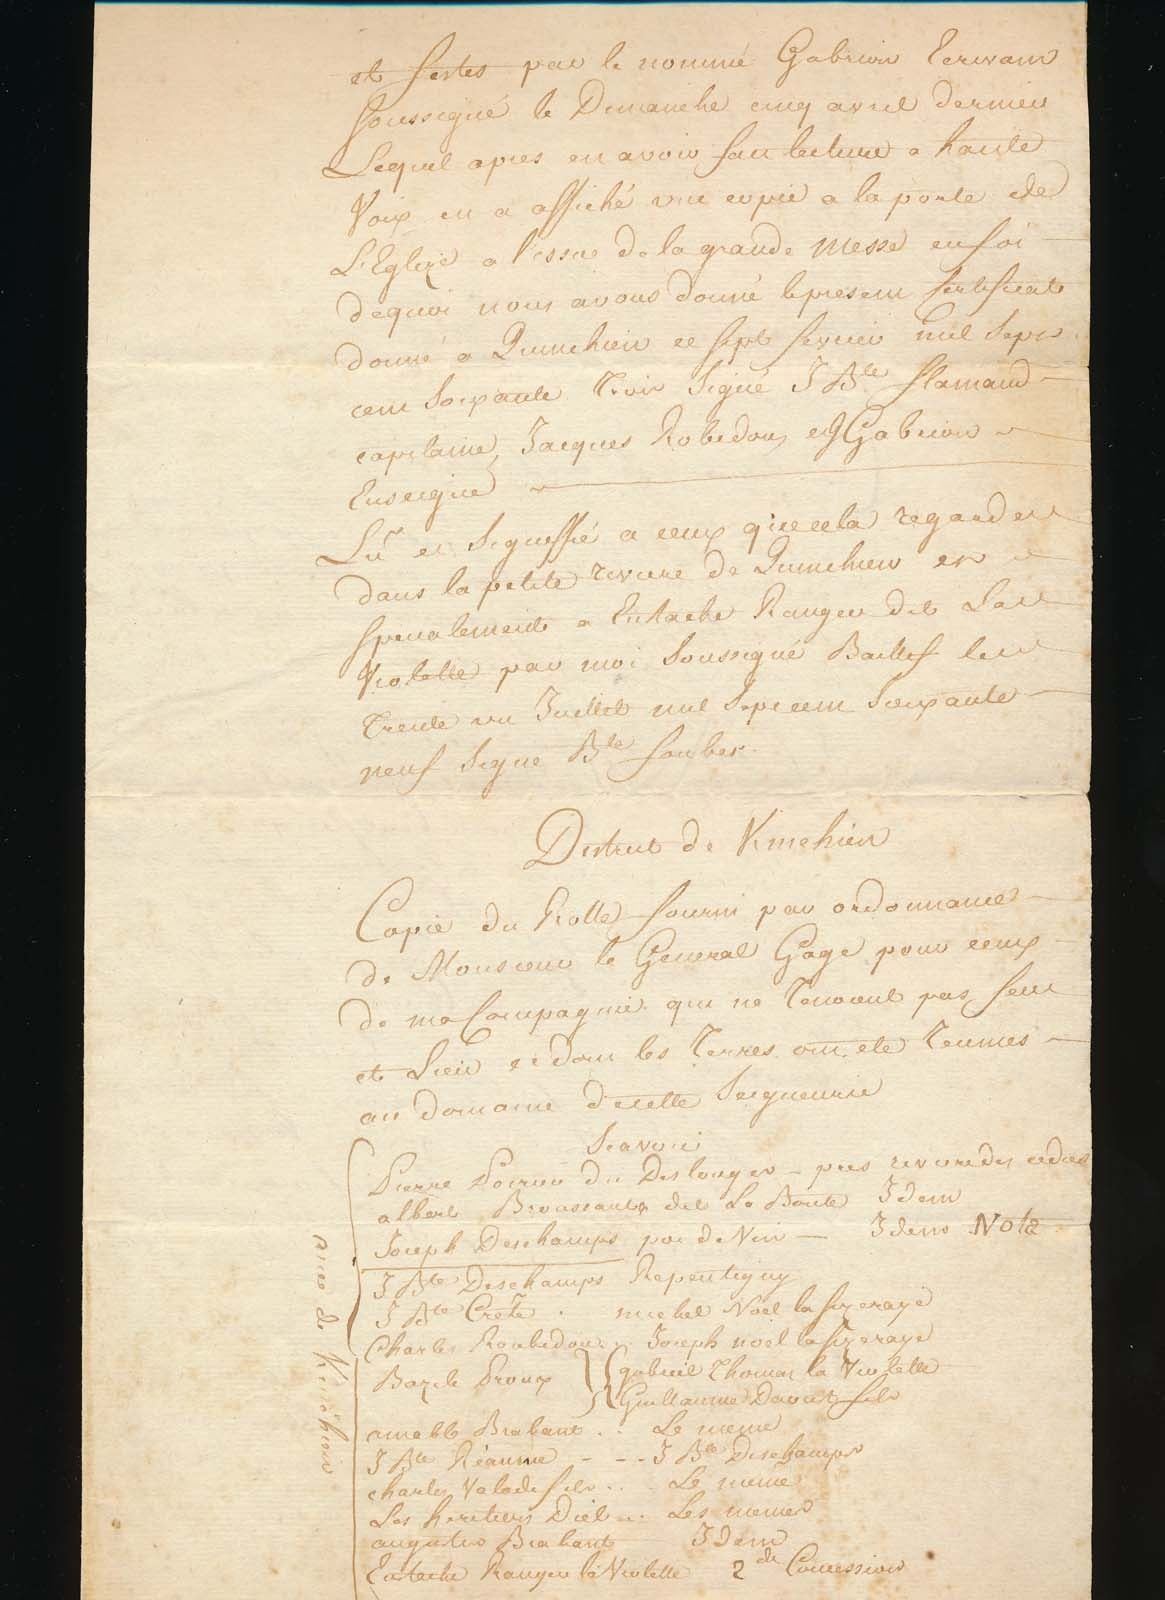 et festes par le nommé Gabrion Ecrivain
soussigné le Dimanche cinq avril dernier
Lequel apres en avoir fait lecture a haute
Voix en a affiché une copie a la porte de
L'Eglize a l'issue de la grande Messe en foi
dequoi nous avons donné le present sertificate
donné a Quinchien ce sept fevrier mil sept
cent soixante trois Signé J Bte flamand
capitaine, Jacques Robidoux et Gabrion
Enseigne
Lu et Signiffié a ceux que cela regarder
dans la petite riviere de Quinchien et
specialement a Eustache Ranger dit La
Violette par moi Soussigné Baillif le
trente un Juillet mil Sept cent Soixante
neuf Signe Bte fauber
District de Kinchien
Copie du Rolle fourni par ordonnance
de Monsieur le General Gage pour ceux
de ma Compagnie qui ne tenoient pas feu
et Lieu et dont les Terres ont eté reunies
au domaine de cette Seigneurie
Scavoir
Pierre Poirier du Deslonger - pres riviere des cedres
albert Brossant dit La Bonté Idem
Joseph Deschamps Idem Nota
J Bte Deschamps Repentigny
J Bte Crête . michel Noel la fizeraye
Charles Roubidoux .. Joseph noel la fizeraye
Bazile Proux } { gabriel Thomas la Violette
Guillaume Daoust fils
amable Brabant .. Le meme
J Bte Réaume - - - J Bte Deschamps
charles Valade fils .. Le meme
Les heritiers Diel .. Les memes
augustin Brabant Idem
Eustache Ranger la Violette 2de Concession
anse de Kinchien